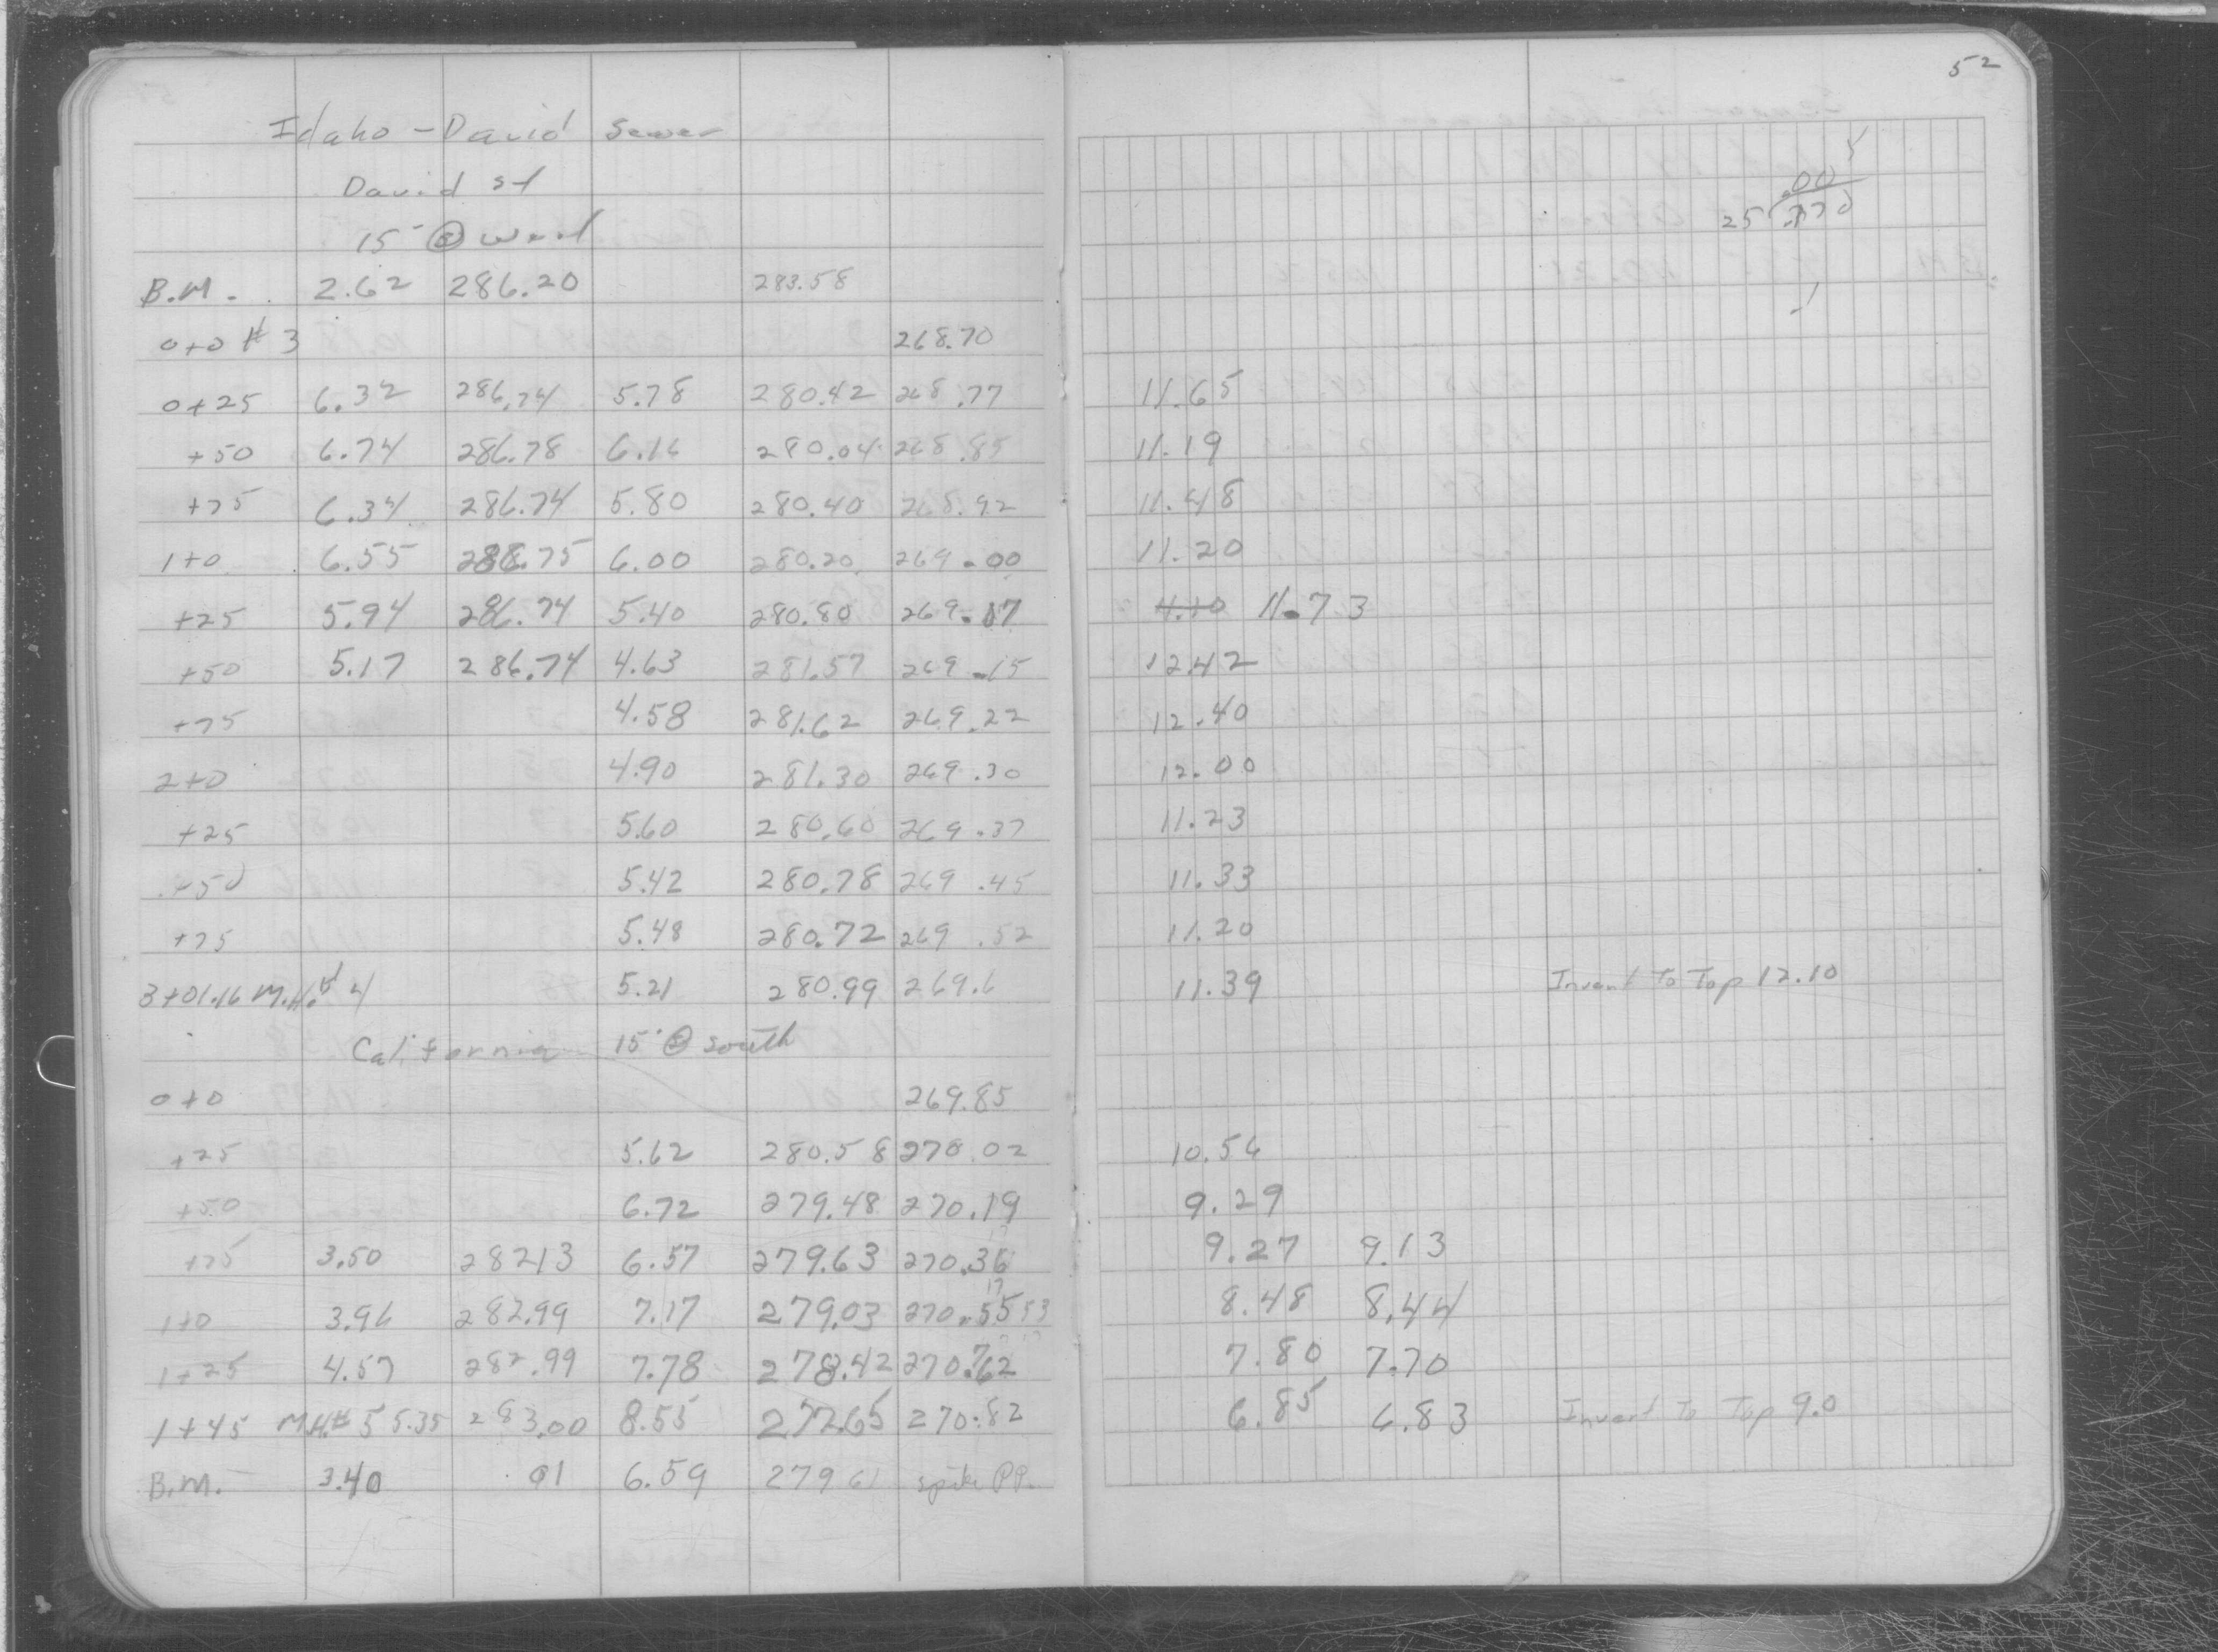 52
Idaho - David Sewer
David St
15' @ West
B.M. 2.62 286.20 283.58
0+0 # 3 268.70
0+25 6.32 286.74 5.78 280.42 268.77 11.65
+50 6.74 286.78 6.16 280.04 268.85 11.19
+75 6.34 286.74 5.80 280.40 268.92 11.48
1+0 6.55 286.75 6.00 280.20 269.00 11.20
+25 5.94 286.74 5.40 280.80 269.07 11.73
+50 5.17 286.74 4.63 281.57 269.15 12.42
+75 4.58 281.62 269.22 12.40
2+0 4.90 281.30 269.30 12.00
+25 5.60 280.60 269.37 11.23
+50 5.42 280.78 269.45 11.33
+75 5.48 280.72 269.52 11.20
3+01.16 M.H.# 4 5.21 280.99 269.6 11.39 Invert To Top 12.10
California 15' @ South
0+0 269.85
+25 5.62 280.58 270.02 10.56
+50 6.72 279.48 270.19 9.29
+75 3.50 282.13 6.57 279.63 270.36 9.27 9.13
1+0 3.96 282.99 7.17 279.03 270.55 53 8.48 8.44
1+25 4.57 282.99 7.78 278.42 270.62 7.80 7.70
1+45 M.H.# 5 5.35 283.00 8.55 277.65 270.82 6.85 6.83 Invert To Top 9.0
B.M. 3.40 .01 6.59 279.61 spike P.P.